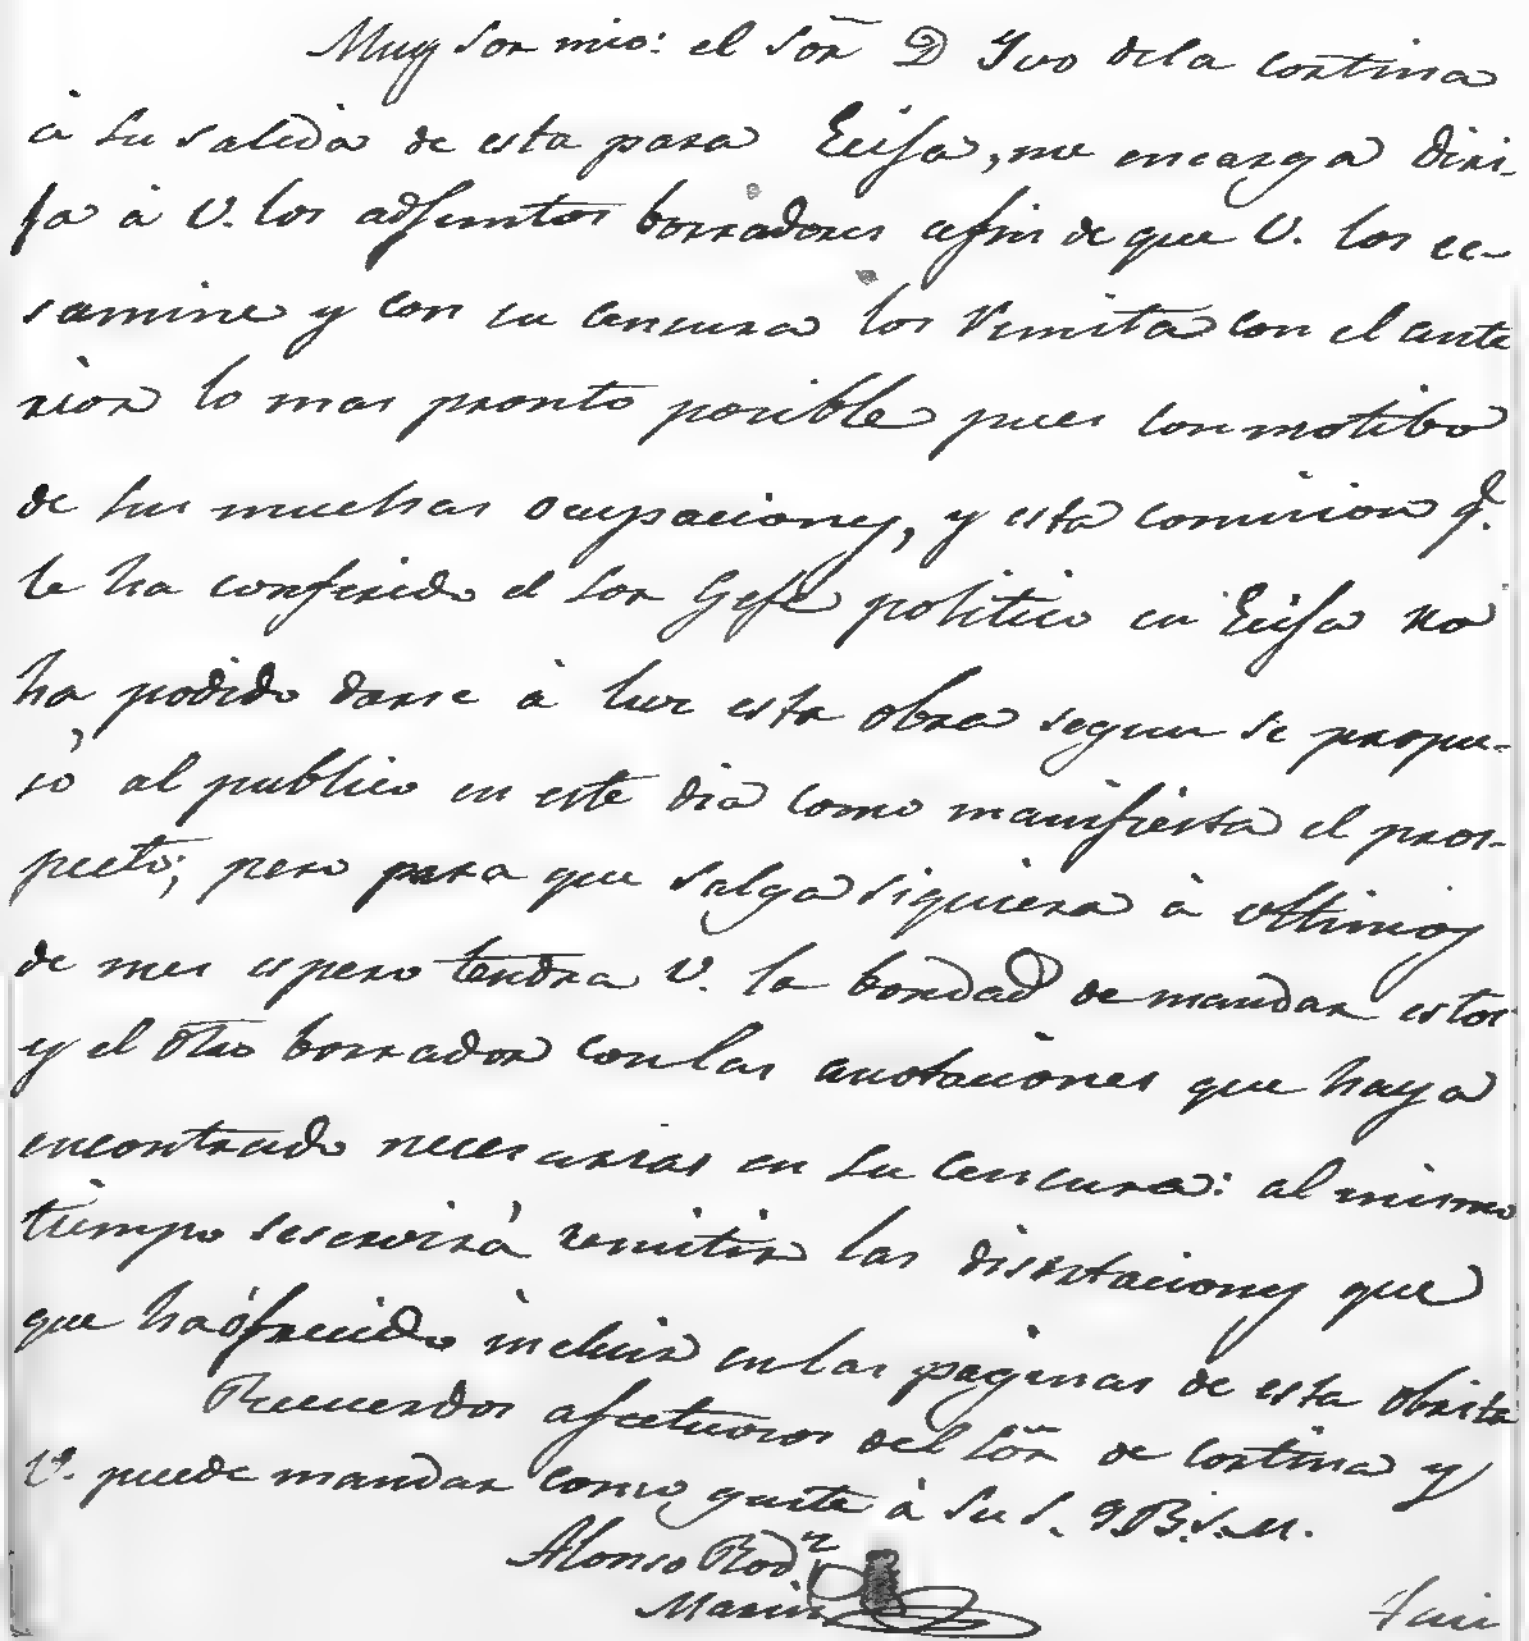 Muy Sor mio: el Sõr D Yvo dela Cortina
à su salida de esta para Ecija, me encarga diri-
ja à V. los adjuntos borradores afin de que V. los ec-
samine y con su censura los remita con el ante
rior lo mas pronto posible pues con motibo
de sus muchas ocupaciones, y esta comision q.
le ha conferido el Sor Gefe politico en Ecija no
ha podido darse à luz esta obra segun se propu-
so al publico en este dia como manifiesta el pros-
pecto; pero para que salga siquiera à ultimos
de mes espero tendra V. la bondad de mandar estos
y el otro borrador con las anotaciones que haya
encontrado necesarias en su censura: al mismo
tiempo seservirá remitir las disertaciones que
que ha ofrecido incluir en las paginas de esta obrita
Recuerdos afectuosos del Sõr de Cortina y
V. puede mandar como guste à su S. Q.B.S.M.
Alonso Rod.n
Marin